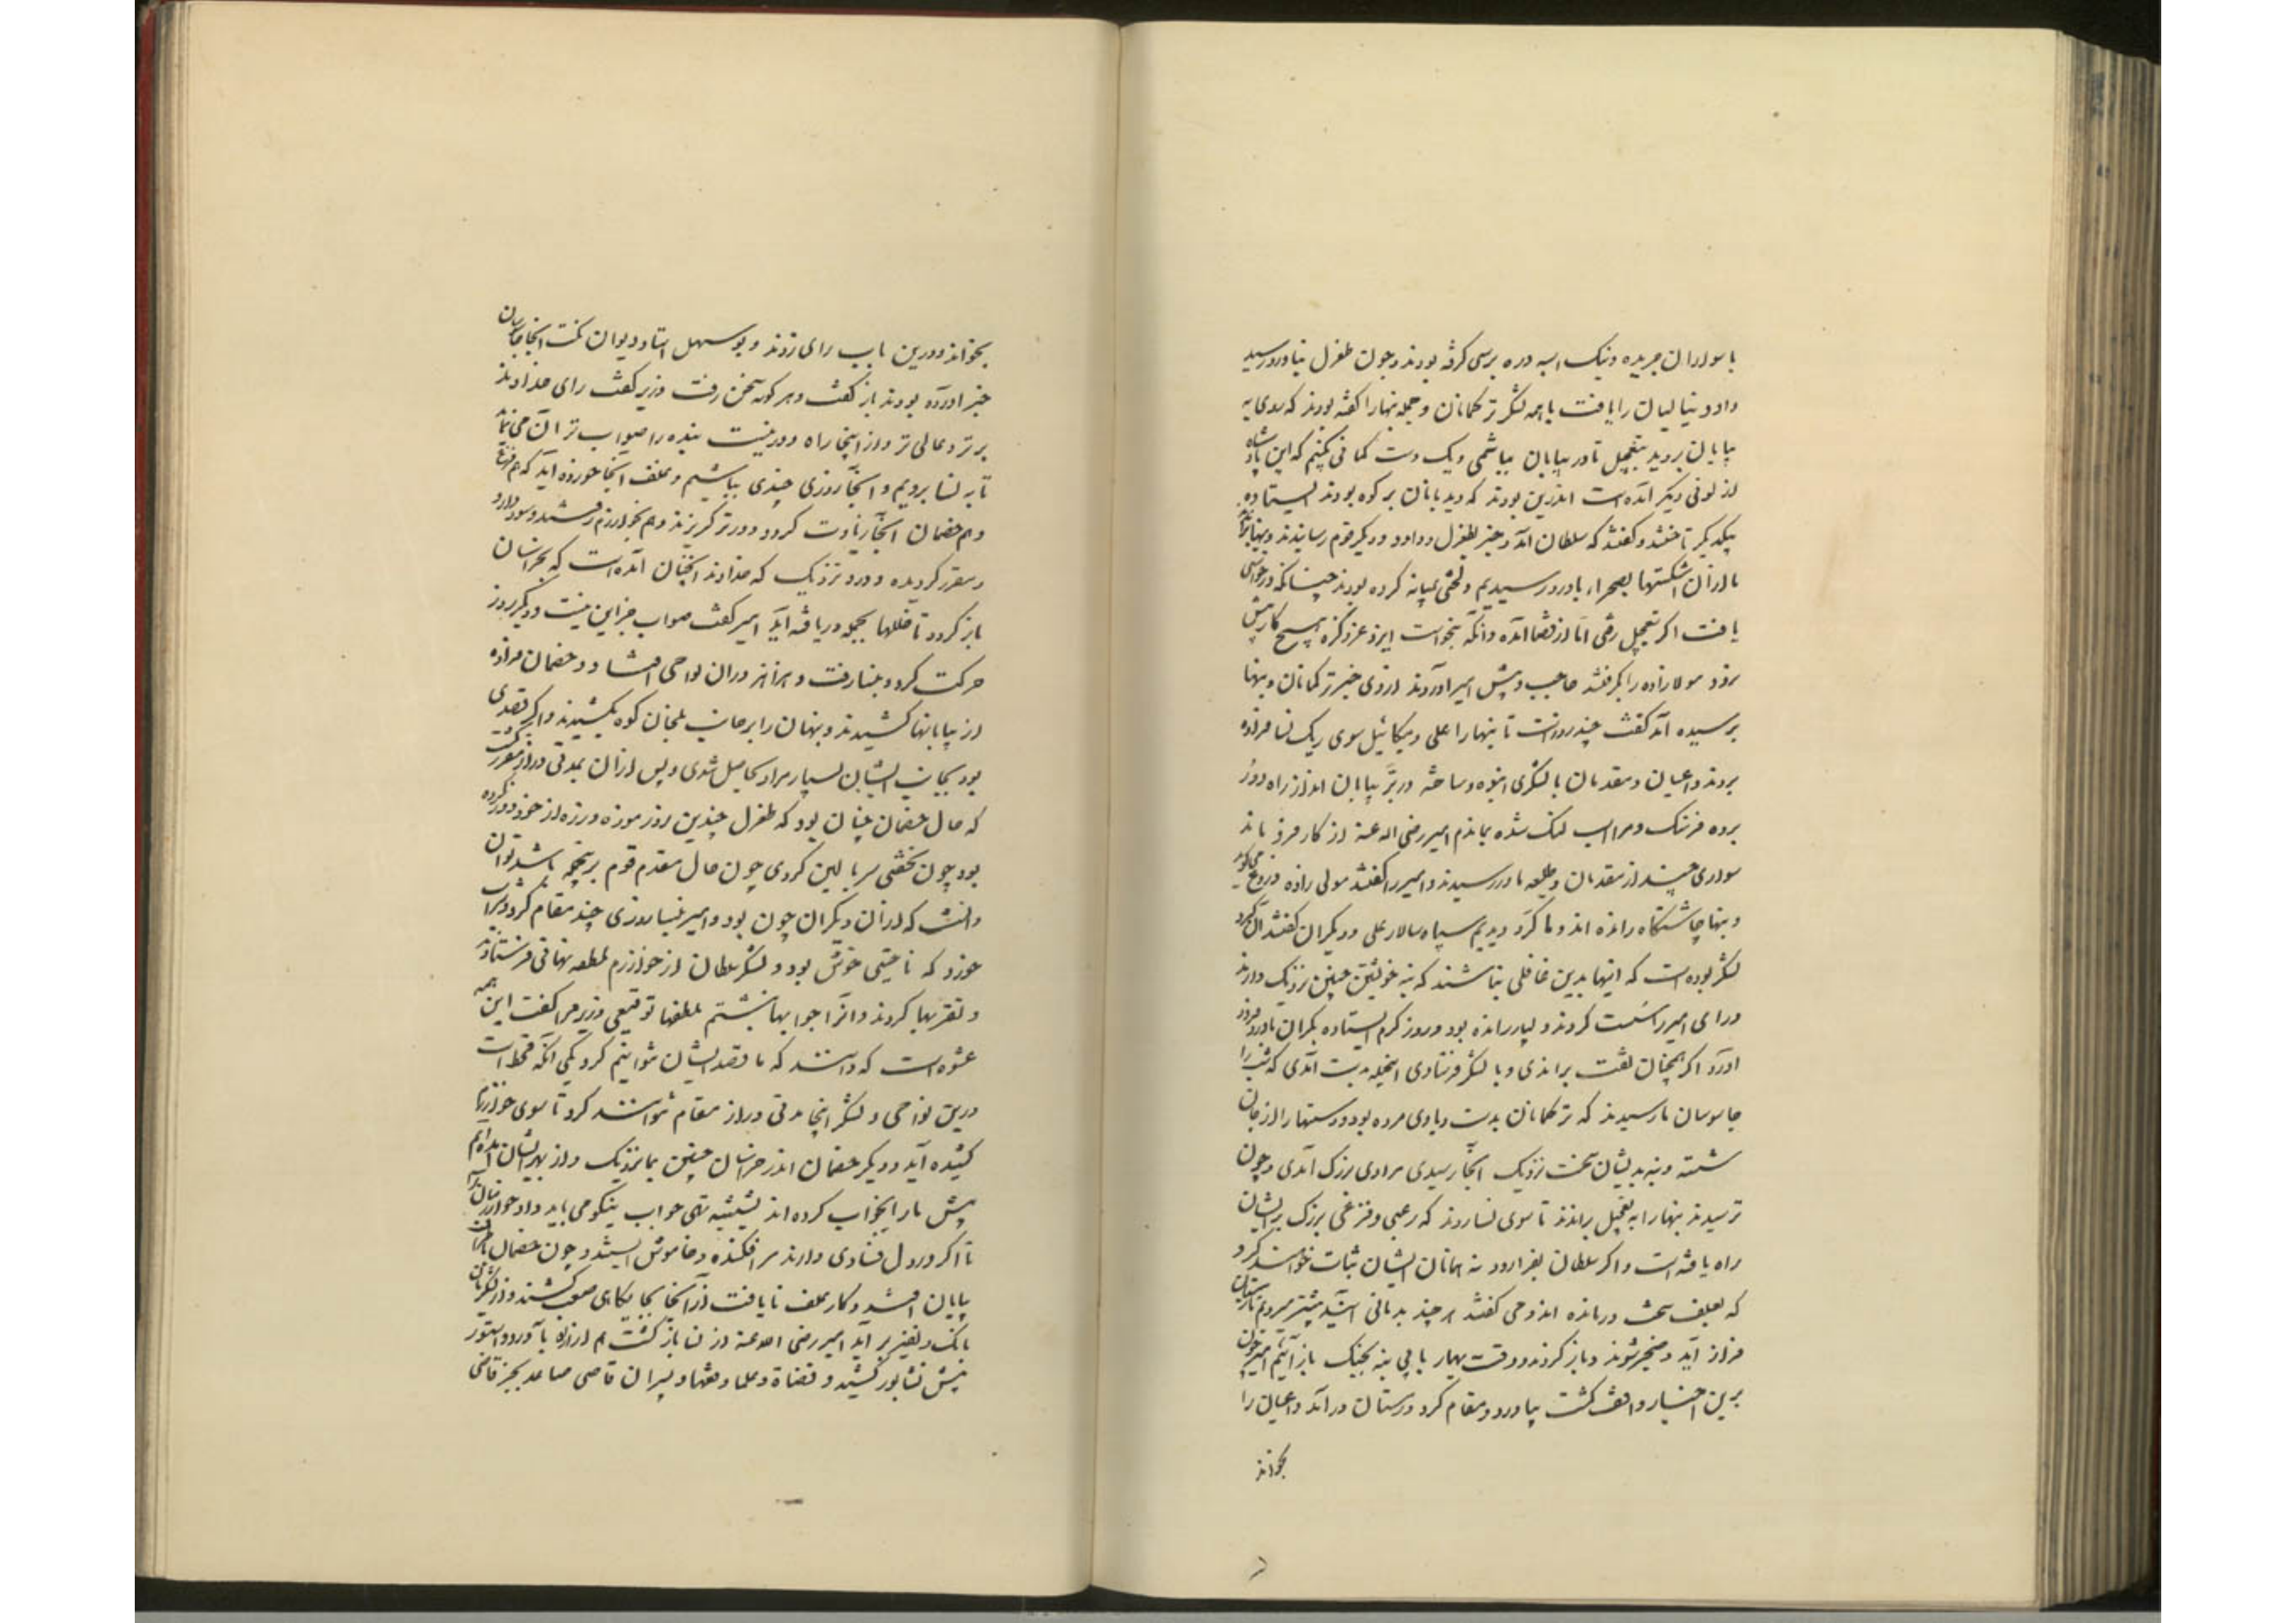 با سواران جریده و نیک اسبه دره برسی گرفته بودند و چون طغرل بباورد رسید
داود و ینالیان را یافت با همه لشکر ترکمانان و جمله بنها را گفته بودند که روی به
بیابان بروید بتعجیل تا در بیابان بباشیم و یک دست کمانی بکنیم که این پادشاه
از لونی دیگر آمده است اندرین بودند که دیدبانان بر کوه بودند ایستاده
بیکدیگر تاختند و گفتند که سلطان آمد و خبر بطغرل و داود و دیگر قوم رسانیدند و بنها براندند
ما از آن شکستها بصحراء باورد رسیدیم و لختی میانه کرده بودند چنانکه در حواسی
یافت اگر بتعجیل رفتی اما از قضا آمده و آنکه نخواست ایزد عز ذکره هیچ کار پیش
نرود مولازاده را بگرفتند حاجب و پیش امیر آوردند از وی خبر ترکمانان و بنها
پرسیده آمد گفت چند روزست تا بنها را علی و میکائیل سوی ریگ نسا فراوه
بردند و اعیان و مقدمان با لشکری انبوه و ساخته در بیابان اند از راه دور
برده فرسنگ و مرا اسب لنگ شده بماندم امیر رضی الله عنه از کار فرو ماند
سواری چند از مقدمان و طلیعه ما در رسیدند و امیر را گفتند مولی زاده دروغ می گوید
و بنها چاشتگاه رانده اند و ما گرد دیدیم سپاه سالار علی و دیگران گفتند آن گرد
لشکر بوده است که اینها بدین غافلی نباشند که بنه خویشتن چنین نزدیک دارند
و رای امیر را سست کردند و بسیار رانده بود و روز گرم ایستاده بکران باورد فرود
آورد اگر همچنان بتفت براندی و یا لشکر فرستادی اینجمله بدست آمدی که شب را
جاسوسان ما رسیدند که ترکمانان بدست و پای مرده بود و دستها را از جان
شسته و بنه بدیشان سخت نزدیک اگر آنجا رسیدی مرادی بزرگ آمدی و چون
ترسیدند بنها را به تعجیل براندند تا سوی نسا روند که رعبی و فزعی بزرگ بریشان
راه یافته است و اگر سلطان بفراوه رود نه همانان ایشان ثبات خواهند کرد
که بعلف سخت درمانده اند و می گفتند هر چند بدمانی آیند پیشتر میرویم تا زمستان
فراز آید و ضجر شوند و باز گردند و وقت بهار بی بنه بجنگ باز آئیم امیر چون
برین اخبار واقف گشت بباورد و مقام کرد و رستان درآمد و اعیان را
بخواند
بخواند و درین باب رای زدند و بوسهل استاد دیوان گفت آنچه جاسوسان
خبر آورده بودند باز گفت و هر گونه سخن رفت وزیر گفت رای خداوند
برتر و عالی تر و از اینجا راه دور نیست بنده را صواب تر آن می نماید
تا به نسا برویم و آنجا روزی چندی بباشیم و علف آنجا خورده آید که هم فزع
و هم خصمان آنجا زیادت گردد و دورتر گریزند و هم بخوارزم رسند و سود دارد
و مقرر گردد دور و نزدیک که خداوند آنچنان آمده است که بخراسان
باز گردد تا خللها بجمله دریافته آید امیر گفت صواب جز این نیست و دیگر روز
حرکت کرد و بنسا رفت و هزاهز در آن نواحی افتاد و خصمان فراوه
از بیابانها کشیدند و بنهان را بر جانب بلخان کوه بکشیدند و اگر قصدی
بود بجانب ایشان بسیار مراد بحاصل شدی و پس از آن بمدتی دراز مقرر گشت
که حال خصمان چنان بود که طغرل چندین روز موزه و زره از خود دور نکرده
بود چون بخفتی سر بالین کردی چون حال مقدم قوم برین جمله باشد توان
دانست که از آن دیگران چون بود و امیر بنسا روزی چند مقام کرد و شراب
خورد که ناحیتی خوش بود و لشکر سلطان از خوارزم ملطفه نهانی فرستادند
و تقربها کردند و آنرا جوابها نبشتم ملطفها توقیعی وزیر مرا گفت این همه
عشوه است که دانستند که ما قصد ایشان نتوانیم کرد یکی آنکه قحط است
درین نواحی و لشکر اینجا مدتی دراز مقام نتوانند کرد تا سوی خوارزم
کشیده آید و دیگر خصمان اندر خراسان چنین بما نزدیک و از بهر ایشان آمده ایم
پیش ما را اینخواب کرده اند شیشه تهی جواب نیکو می باید داد خوارزمیان را
تا اگر در دل فسادی دارند سر افکنده و خاموش ایستند و چون خصمان
بیابان افتند و کار علف نایافت از آنجا بجایگاهی صعب کشند و از لشکر
بانگ و نفیر بر آید امیر رضی الله عنه از نسا بازگشت هم از راه باورد و استور
پیش نشابور کشید و قضاة و علما و فقها و پسران قاضی صاعد بجز قاضی